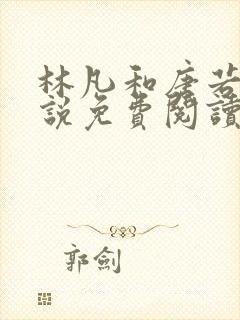 林凡和唐若
說免費閱讀
郭劍